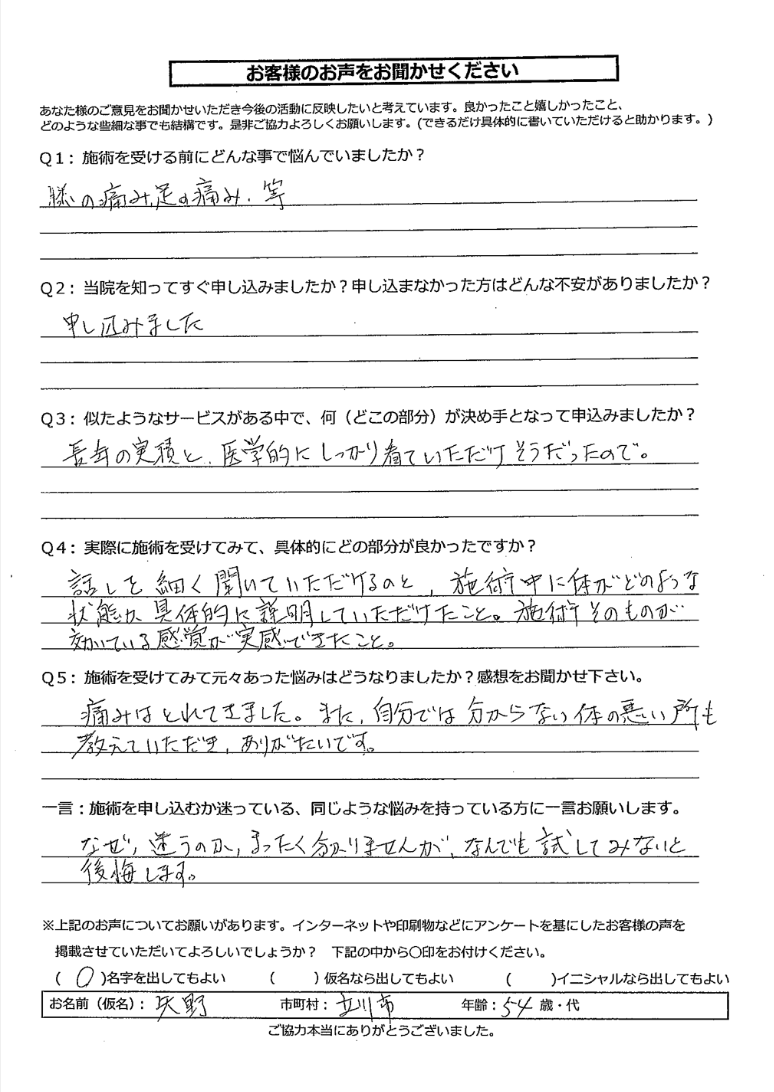 お客様のお声をお聞かせください
あなた様のご意見をお聞かせいただき今後の活動に反映したいと考えています。良かったこと嬉しかったこと、
どのような些細な事でも結構です。是非ご協力よろしくお願いします。(できるだけ具体的に書いていただけると助かります。)
Q1：施術を受ける前にどんな事で悩んでいましたか？
膝の痛み,足の痛み、等
Q2：当院を知ってすぐ申し込みましたか？申し込まなかった方はどんな不安がありましたか？
申し込みました
Q3：似たようなサービスがある中で、何（どこの部分）が決め手となって申込みましたか？
長年の実積と、医学的にしっかり着ていただけそうだったので。
Q4：実際に施術を受けてみて、具体的にどの部分が良かったですか？
話しを細く聞いていただけるのと、施術中に体がどのような
状態か具体的に説明していただけたこと。施術そのものが
効いている感覚が実感できたこと。
Q5：施術を受けてみて元々あった悩みはどうなりましたか？感想をお聞かせ下さい。
痛みはとれてきました。また、自分では分からない体の悪い所も
教えていただき、ありがたいです。
一言：施術を申し込むか迷っている、同じような悩みを持っている方に一言お願いします。
なぜ，迷うのか，まったく分かりませんが、なんでも試してみないと
後悔します。
※上記のお声についてお願いがあります。インターネットや印刷物などにアンケートを基にしたお客様の声を
掲載させていただいてよろしいでしょうか？ 下記の中から〇印をお付けください。
(〇)名字を出してもよい ( )仮名なら出してもよい ( )イニシャルなら出してもよい
お名前（仮名）：矢野 市町村：立川市 年齢：54 歳・代
ご協力本当にありがとうございました。